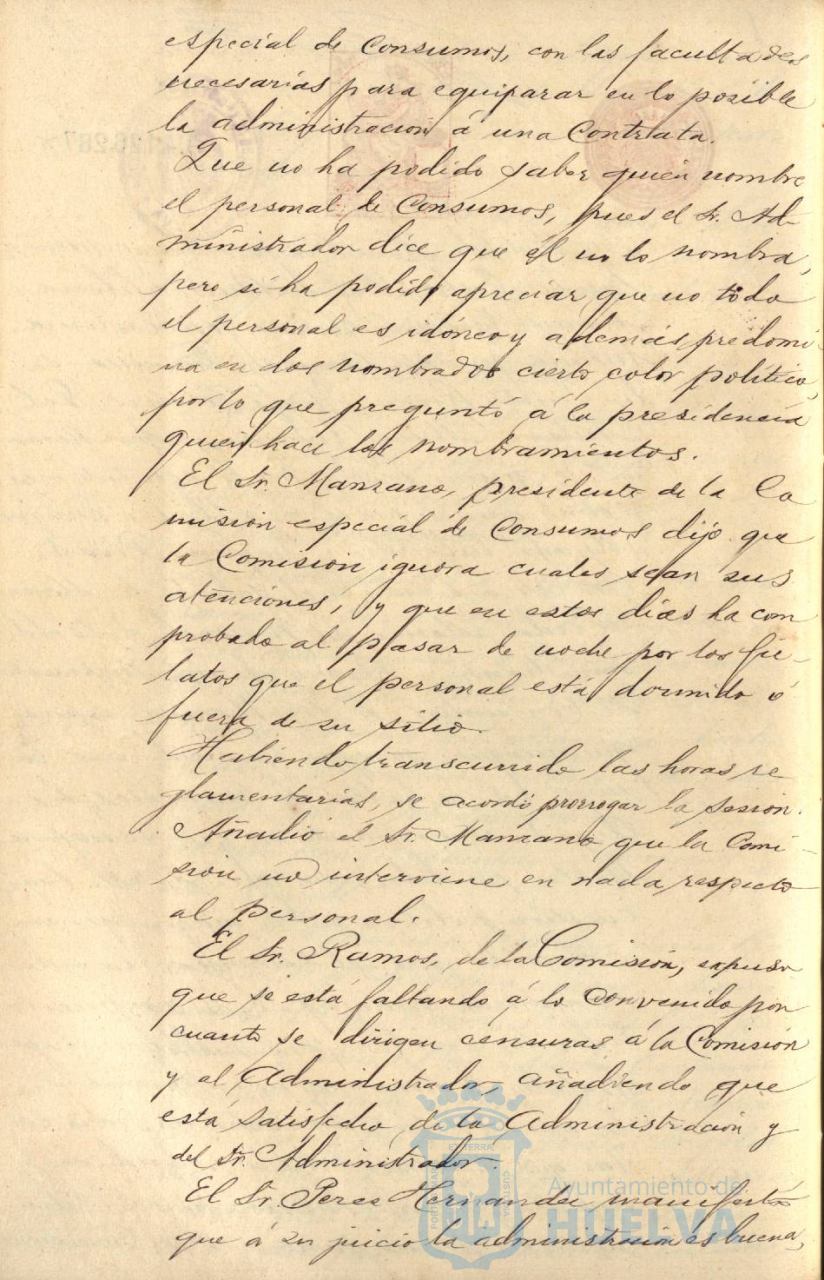 especial de Consumos, con las facultades
necesarias para equiparar en lo posible
la administracion á una Contrata.
Que no ha podido saber quién nombre
el personal de Consumos, pues el Sr. Ad-
ministrador dice que él no lo nombra,
pero sí ha podido apreciar que no todo
el personal es idóneo y además predomi-
na en los nombrados cierto color político,
por lo que preguntó á la presidencia
quien hace los nombramientos.
El Sr. Manzano, presidente de la Co
misión especial de Consumos dijo que
la Comisión ignora cuales sean sus
atenciones, y que en estos días ha com
probado al pasar de noche por los fie-
latos que el personal está dormido ó
fuera de su sitio.
Habiendo transcurrido las horas re
glamentarias, se acordó prorrogar la sesión.
Añadió el Sr. Manzano que la Comi-
sión no interviene en nada respecto
al personal.
El Sr. Ramos, de la Comisión, expuso
que se está faltando á lo convenido por
cuanto se dirigen censuras á la Comisión
y al Administrador, añadiendo que
está satisfecho de la Administración y
del Sr. Administrador.
El Sr. Perez Hernandez manifestó
que á su juicio la administración es buena,
Ayuntamiento de
HUELVA